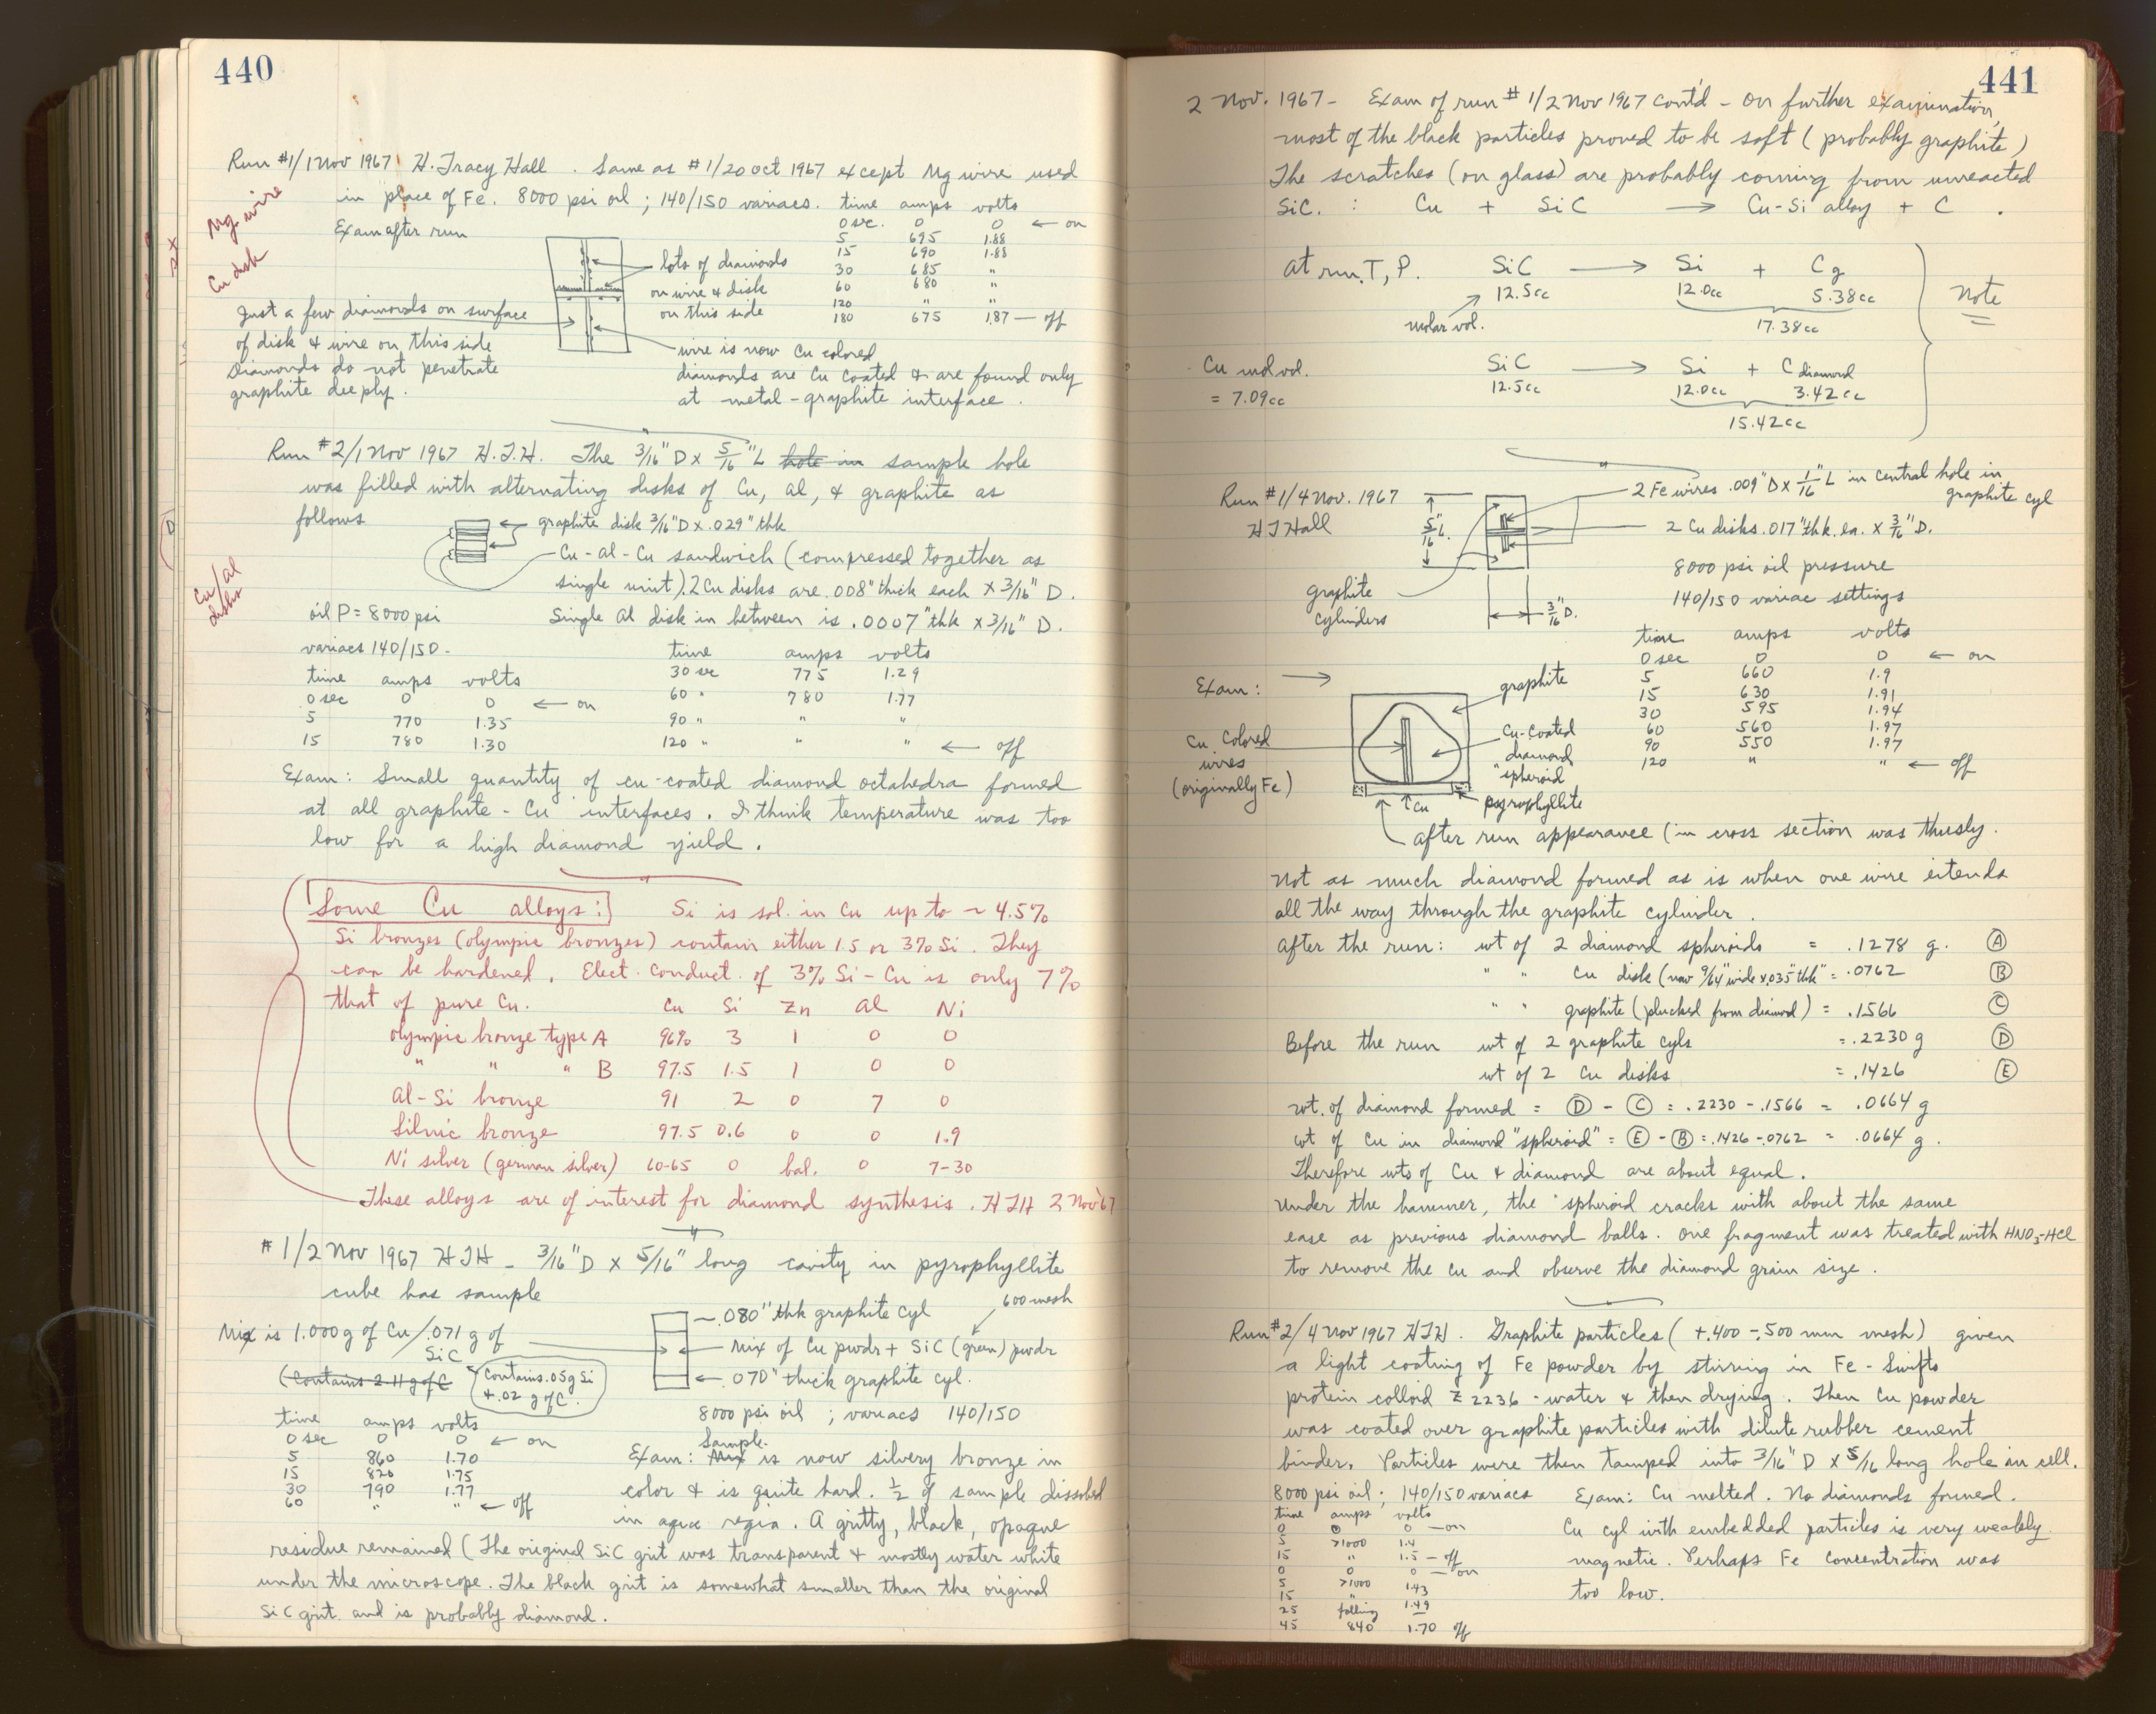 440
Run #1/1 Nov 1967 H. Tracy Hall. Same as #1/20 Oct 1967 except Mg wire used
in place of Fe. 8000 psi oil; 140/150 variacs. time amps volts
Mg wire
Cu disk
Exam after run
0 sec. 0 0 ← on
5 695 1.88
15 690 1.88
30 685 "
60 680 "
120 " "
180 675 1.87 — off
lots of diamonds
on wire & disk
on this side
Just a few diamonds on surface
of disk & wire on this side
Diamonds do not penetrate
graphite deeply.
wire is now Cu colored
diamonds are Cu coated & are found only
at metal-graphite interface.
Run #2/1 Nov 1967 H.T.H. The 3/16" D x 5/16" L hole in sample hole
was filled with alternating disks of Cu, Al, & graphite as
follows
graphite disk 3/16" D x .029" thk
Cu-Al-Cu sandwich (compressed together as
single unit). 2 Cu disks are .008" thick each x 3/16" D.
Single Al disk in between is .0007" thk x 3/16" D.
Cu/Al
disks
oil P = 8000 psi
variacs 140/150.
time amps volts
0 sec 0 0 ← on
5 770 1.35
15 780 1.30
time amps volts
30 sec 775 1.29
60 " 780 1.77
90 " " "
120 " " " ← off
Exam: Small quantity of cu-coated diamond octahedra formed
at all graphite-Cu interfaces. I think temperature was too
low for a high diamond yield.
Some Cu alloys: Si is sol. in Cu up to ~ 4.5%
Si bronzes (olympic bronzes) contain either 1.5 or 3% Si. They
can be hardened. Elect. conduct. of 3% Si-Cu is only 7%
that of pure Cu. Cu Si Zn Al Ni
olympic bronze type A 96% 3 1 0 0
" " " B 97.5 1.5 1 0 0
Al-Si bronze 91 2 0 7 0
Silnic bronze 97.5 0.6 0 0 1.9
Ni silver (german silver) 60-65 0 bal. 0 7-30
These alloys are of interest for diamond synthesis. HTH 2 Nov '67
#1/2 Nov 1967 HTH - 3/16" D x 5/16" long cavity in pyrophyllite
cube has sample
.080" thk graphite cyl
600 mesh
Mix of Cu pwdr + SiC (green) pwdr
.070" thick graphite cyl.
Mix is 1.000 g of Cu/.071 g of
SiC
(Contains 2.11 g of C
Contains .05g Si
+ .02 g of C.
8000 psi oil; variacs 140/150
time amps volts
0 sec 0 0 ← on
5 860 1.70
15 820 1.75
30 790 1.77
60 " " ← off
Sample
Exam: Mix is now silvery bronze in
color & is quite hard. 1/2 of sample dissolved
in aqua regia. A gritty, black, opaque
residue remained (The original SiC grit was transparent & mostly water white
under the microscope. The black grit is somewhat smaller than the original
SiC grit. and is probably diamond.
441
2 Nov. 1967 - Exam of run #1/2 Nov 1967 cont'd - On further examination,
most of the black particles proved to be soft (probably graphite)
The scratches (on glass) are probably coming from unreacted
SiC. : Cu + SiC → Cu-Si alloy + C .
At run T, P. SiC → Si + Cg
12.5cc 12.0cc 5.38cc
molar vol.
17.38cc
Note
SiC → Si + C diamond
12.5cc 12.0cc 3.42cc
15.42cc
Cu mol vol.
= 7.09cc
Run #1/4 Nov. 1967
HTHall
5/16" L.
2 Fe wires .009" D x 1/16" L in central hole in
graphite cyl
2 Cu disks .017" thk. ea. x 3/16" D.
8000 psi oil pressure
140/150 variac settings
graphite
cylinders
3/16" D.
time amps volts
0 sec 0 0 ← on
5 660 1.9
15 630 1.91
30 595 1.94
60 560 1.97
90 550 1.97
120 " " ← off
Exam: →
graphite
Cu-coated
diamond
"spheroid
Cu colored
wires
(originally Fe)
Cu
pyrophyllite
after run appearance (in cross section was thusly.
Not as much diamond formed as is when one wire extends
all the way through the graphite cylinder.
After the run: wt of 2 diamond spheroids = .1278 g. A
" " Cu disk (now 9/64" wide x .035" thk" = .0762 B
" " graphite (plucked from diamond) = .1566 C
Before the run wt of 2 graphite cyls = .2230 g D
wt of 2 Cu disks = .1426 E
wt. of diamond formed = D - C = .2230 - .1566 = .0664 g
wt of Cu in diamond "spheroid" = E - B = .1426 - .0762 = .0664 g.
Therefore wts of Cu & diamond are about equal.
Under the hammer, the "spheroid cracks with about the same
ease as previous diamond balls. One fragment was treated with HNO3-HCl
to remove the Cu and observe the diamond grain size.
Run #2/4 Nov 1967 HTH. Graphite particles (+.400 -.500 mm mesh) given
a light coating of Fe powder by stirring in Fe - Swifts
protein colloid Z 2236 - water & then drying. Then Cu powder
was coated over graphite particles with dilute rubber cement
binder. Particles were then tamped into 3/16" D x 5/16 long hole in cell.
8000 psi oil; 140/150 variacs
time amps volts
0 0 0 — on
5 >1000 1.4
15 " 1.5 — off
0 0 0 — on
5 >1000 1.43
15 "
25 falling 1.49
45 840 1.70 off
Exam: Cu melted. No diamonds formed.
Cu cyl with embedded particles is very weakly
magnetic. Perhaps Fe concentration was
too low.